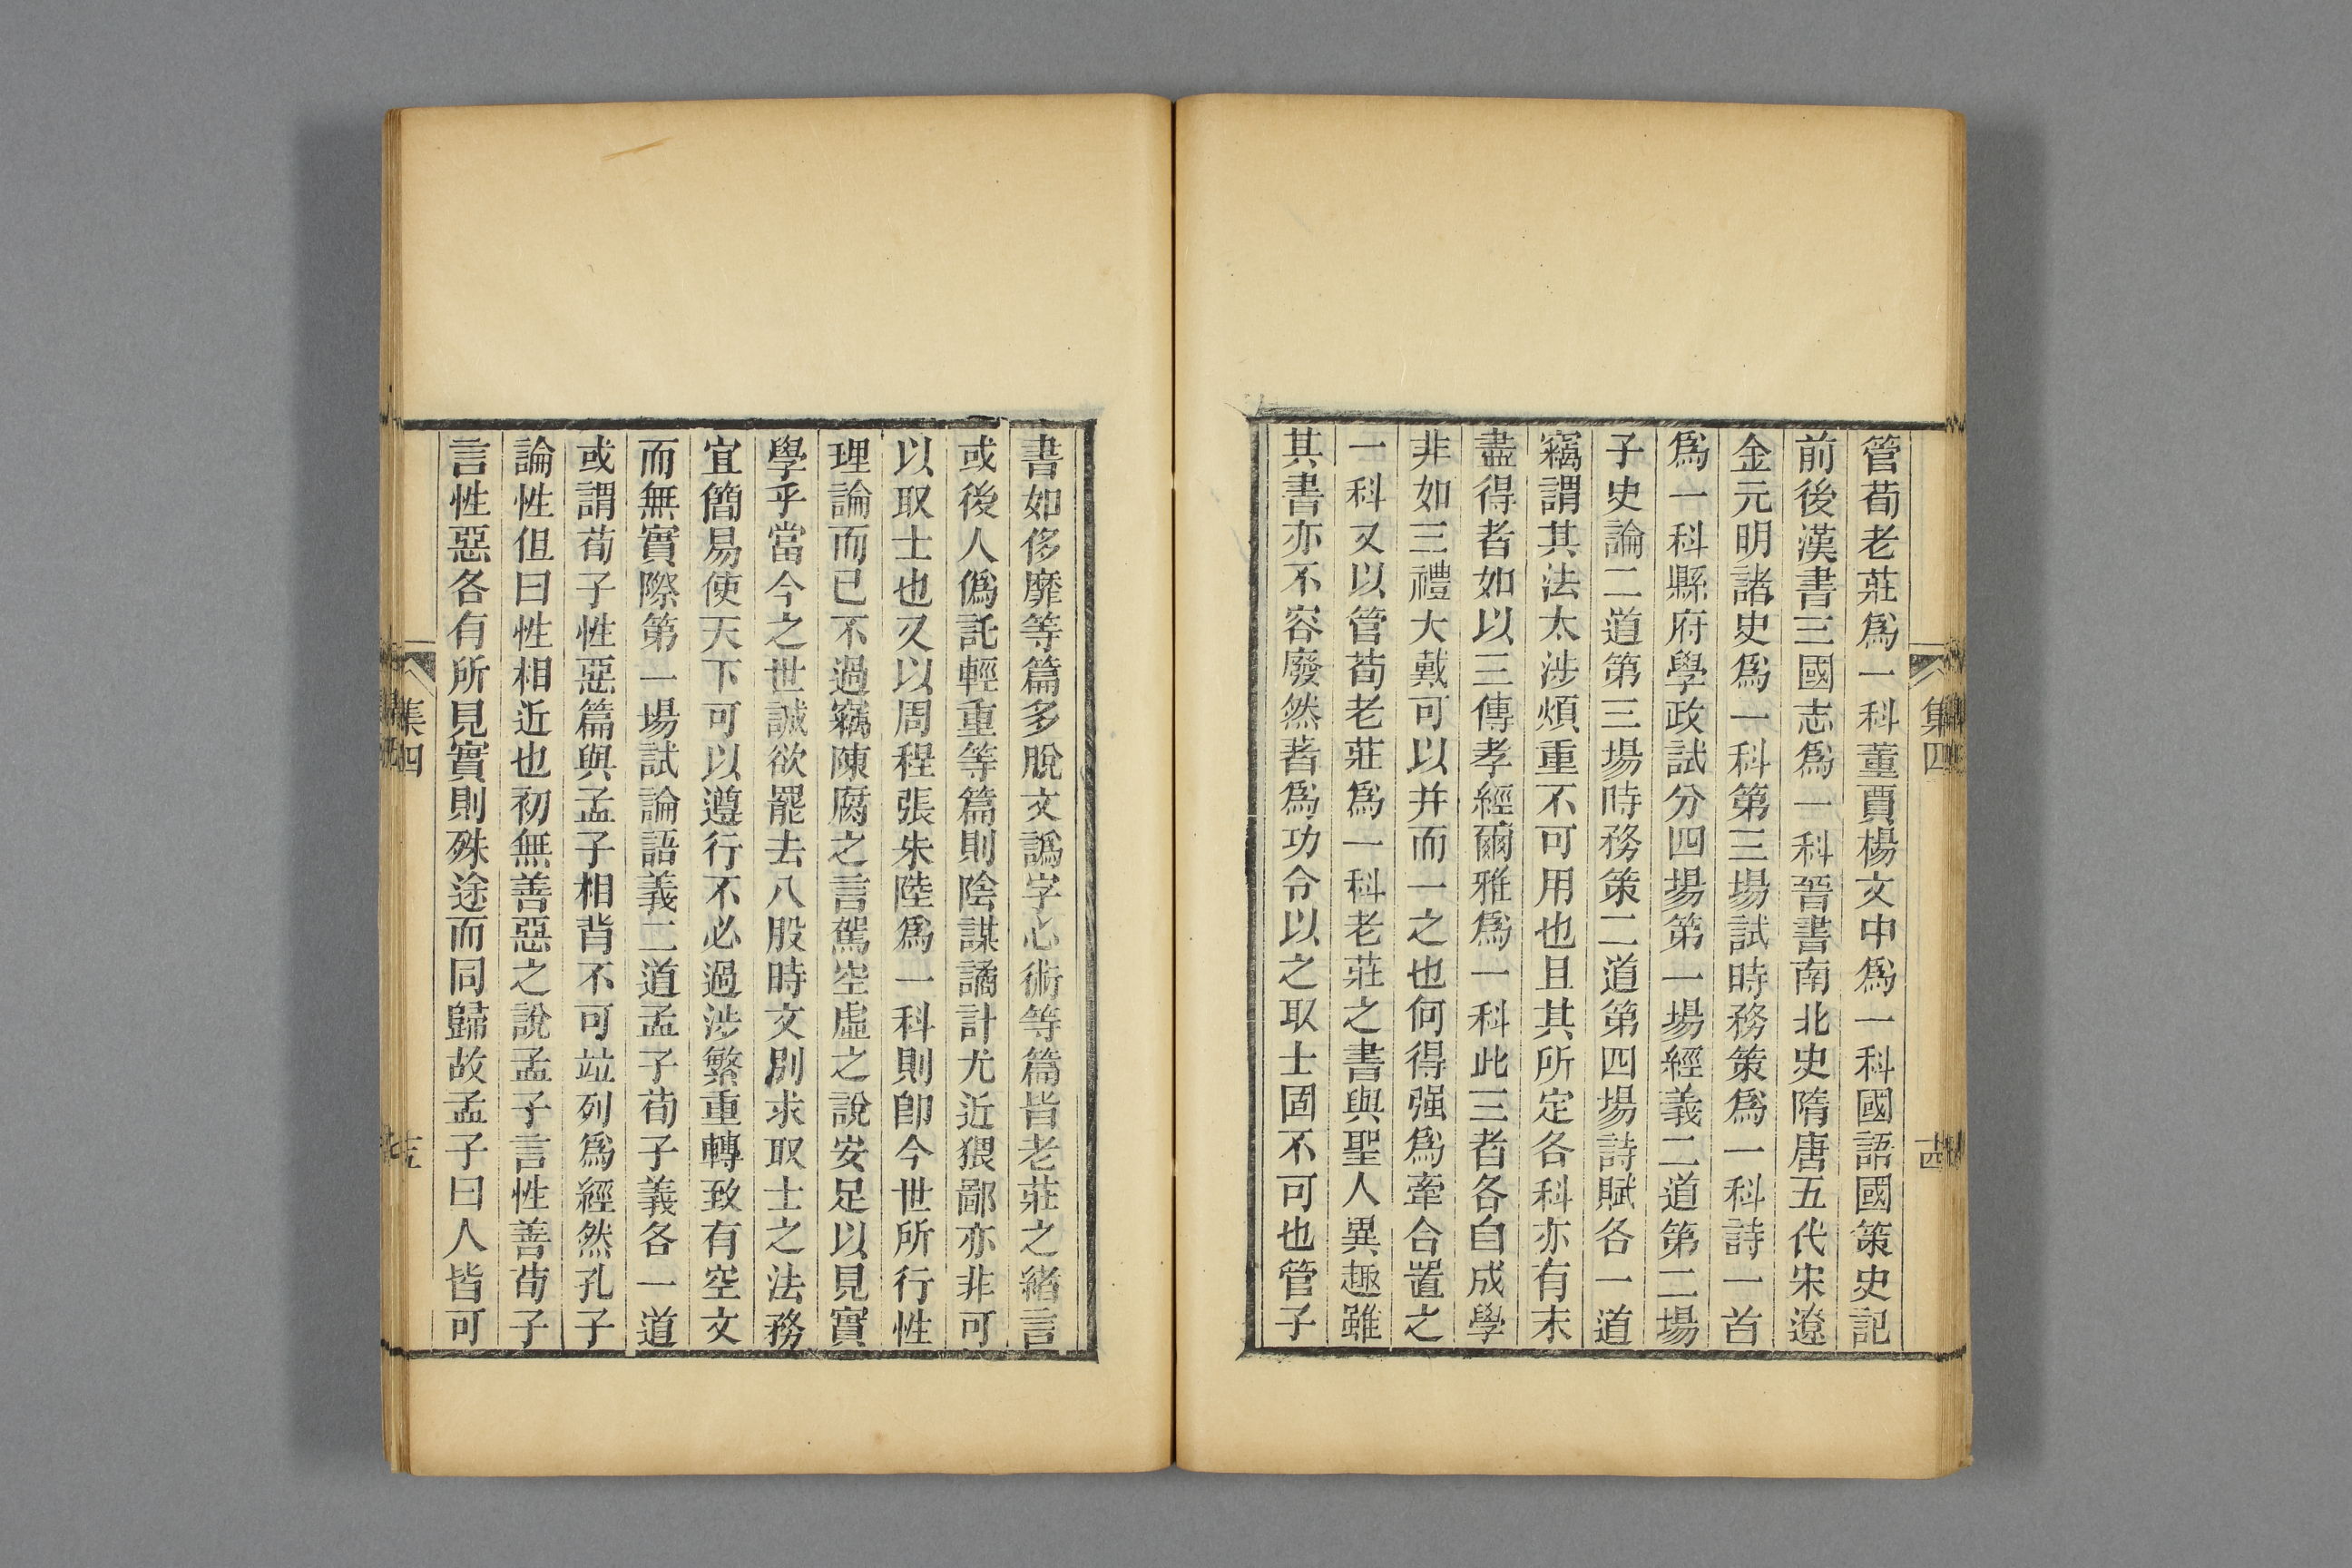 管荀老莊爲一科董賈楊文中爲一科國語國策史記
前後漢書三國志爲一科晉書南北史隋唐五代宋遼
金元明諸史爲一科第三場試時務策爲一科詩一首
爲一科縣府學政試分四場第一場經義二道第二場
子史論二道第三場時務策二道第四場詩賦各一道
竊謂其法太涉煩重不可用也且其所定各科亦有未
盡得者如以三傳孝經爾雅爲一科此三者各自成學
非如三禮大戴可以并而一之也何得强爲牽合置之
一科又以管荀老莊爲一科老莊之書與聖人異趣雖
其書亦不容廢然著爲功令以之取士固不可也管子
集四
十四
書如侈靡等篇多脫文譌字心術等篇皆老莊之緒言
或後人僞託輕重等篇則陰謀譎計尤近猥鄙亦非可
以取士也又以周程張朱陸爲一科則卽今世所行性
理論而已不過竊陳腐之言駕空虛之說安足以見實
學乎當今之世誠欲罷去八股時文別求取士之法務
宜簡易使天下可以遵行不必過涉繁重轉致有空文
而無實際第一場試論語義二道孟子荀子義各一道
或謂荀子性惡篇與孟子相背不可竝列爲經然孔子
論性但曰性相近也初無善惡之說孟子言性善荀子
言性惡各有所見實則殊途而同歸故孟子曰人皆可
集四